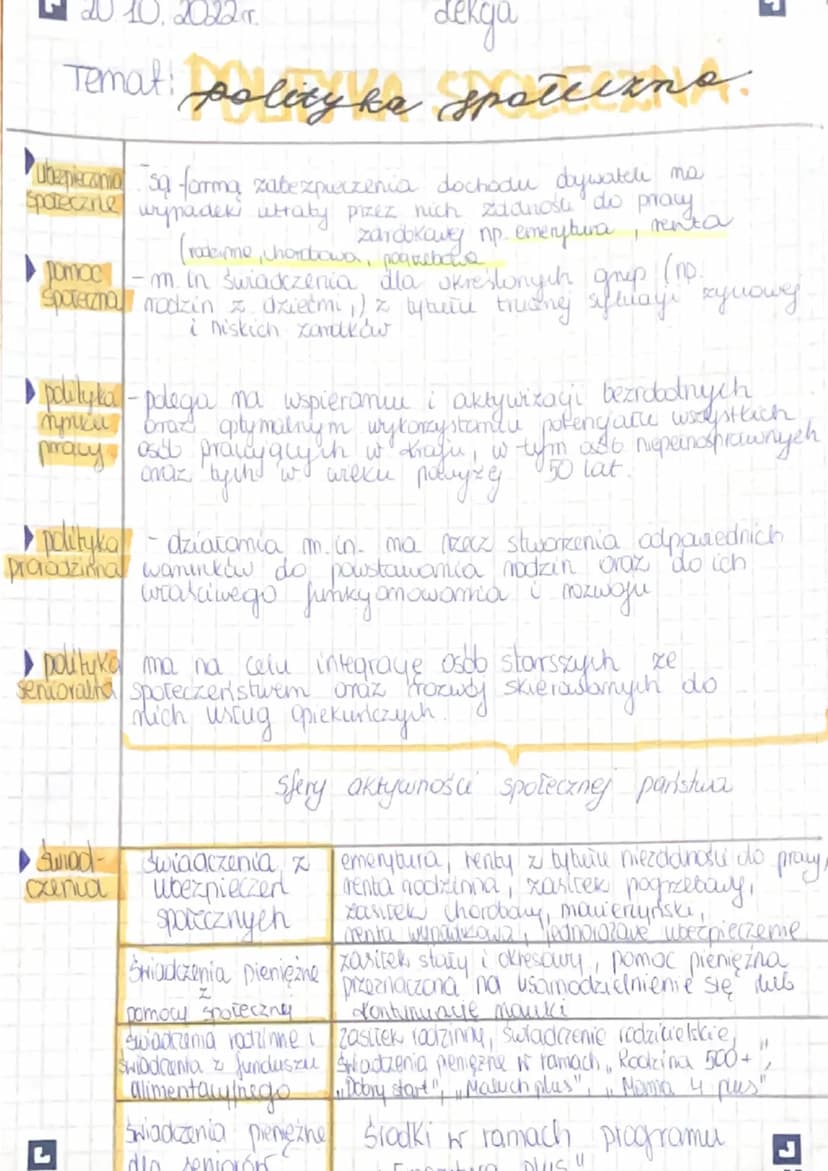 20 10. 2022 r.
lekcja
Temat: POLITYKA SPOŁECZNA.
polityka społeczna
ubezpieczenia
społeczne
- są formą zabezpieczenia dochodu obywateli na
wypadek utraty przez nich zdolności do pracy
zarobkowej np. emerytura, renta
(rodzinna, chorobowa, pogrzebowa
pomoc
społeczna
- m. in świadczenia dla określonych grup (np.
rodzin z dziećmi,) z tytułu trudnej sytuacji życiowej
i niskich zarobków
polityka
rynku
pracy
- polega na wspieraniu i aktywizacji bezrobotnych
oraz optymalnym wykorzystaniu potencjału wszystkich
osób pracujących w kraju, w tym osób niepełnosprawnych
oraz tych w wieku powyżej 50 lat.
polityka
prorodzinna
- działania m.in. na rzecz stworzenia odpowiednich
warunków do powstawania rodzin oraz do ich
właściwego funkcjonowania i rozwoju
polityka
senioralna
ma na celu integrację osób starszych ze
społeczeństwem oraz rozwój skierowanych do
nich usług opiekuńczych.
sfery aktywności społecznej państwa
świad-
czenia
świadczenia z
ubezpieczeń
społecznych
emerytura, renty z tytułu niezdolności do pracy,
renta rodzinna, zasiłek pogrzebowy,
zasiłek chorobowy, macierzyński,
renta wypadkowa, jednorazowe ubezpieczenie
świadczenia pieniężne
z
pomocy społecznej
zasiłek stały i okresowy, pomoc pieniężna
przeznaczona na usamodzielnienie się lub
kontynuację nauki
świadczenia rodzinne i
świadczenia z funduszu
alimentacyjnego
zasiłek rodzinny, świadczenie rodzicielskie,
świadzenia pieniężne w ramach „Rodzina 500+",
„Dobry start", „Maluch plus", „Mama 4 plus"
świadczenia pieniężne
dla seniorów
środki w ramach programu
„Emerytura plus"